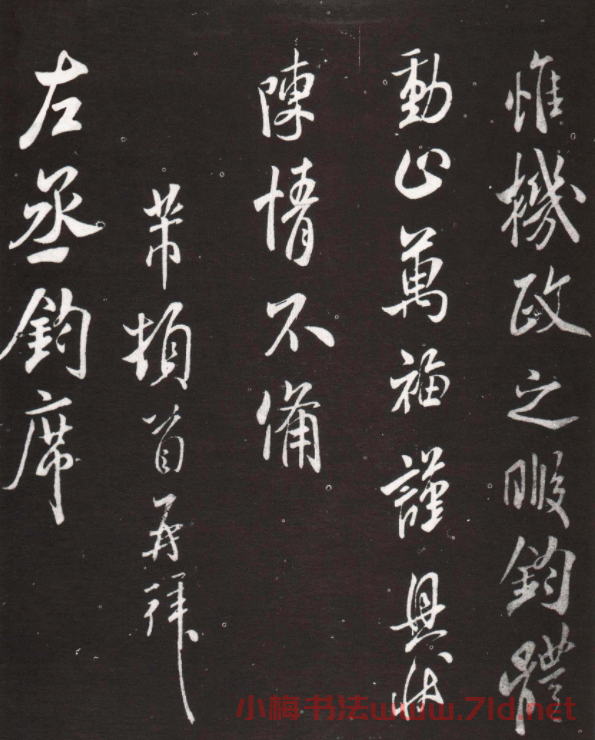 惟機政之暇鈞體
動止萬福謹具狀
陳情不備
芾頓首再拜
左丞鈞席
小梅书法www.7ld.net